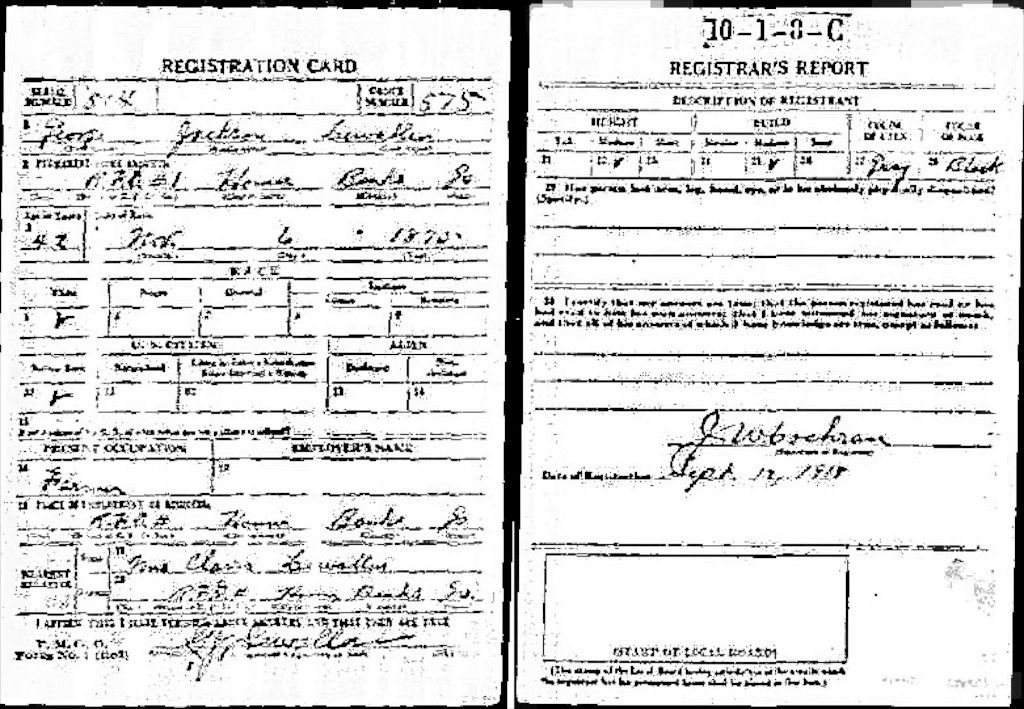 REGISTRATION CARD
SERIAL NUMBER 504 ORDER NUMBER 575
1 George Jackson Lewallen
2 PERMANENT HOME ADDRESS
R.F.D. #1 Homer Banks Ga
Age in Years Date of Birth
3 42 6 1875
RACE
White Negro Oriental Indian
5 ✓ 6 7 8 9
U. S. CITIZEN ALIEN
Native Born Naturalized Declarant
10 ✓ 11 12 13 14
15
PRESENT OCCUPATION EMPLOYER'S NAME
16 Farmer 17
18 PLACE OF EMPLOYMENT OR BUSINESS
R.F.D. # Homer Banks Ga
NEAREST RELATIVE Name 19 Clara Lewallen
20 R.F.D. # Homer Banks Ga.
I AFFIRM THAT I HAVE VERIFIED ABOVE ANSWERS AND THAT THEY ARE TRUE
P. M. G. O.
Form No. 1 (Red) G J Lewallen
10-1-8-C
REGISTRAR'S REPORT
DESCRIPTION OF REGISTRANT
HEIGHT BUILD COLOR OF EYES COLOR OF HAIR
Tall Medium Short Slender Medium Stout
21 22 ✓ 23 24 25 ✓ 26 27 Gray 28 Black
29 Has person lost arm, leg, hand, eye, or is he obviously physically disqualified?
(Specify.)
30 I certify that my answers are true; that the person registered has read or has
had read to him his own answers; that I have witnessed his signature or mark,
and that all of his answers of which I have knowledge are true, except as follows:
J W Cochran
(Signature of Registrar)
Date of Registration Sept. 12, 1918
(STAMP OF LOCAL BOARD)
(The stamp of the Local Board having jurisdiction of the area in which
the registrant has his permanent home shall be placed in this box.)